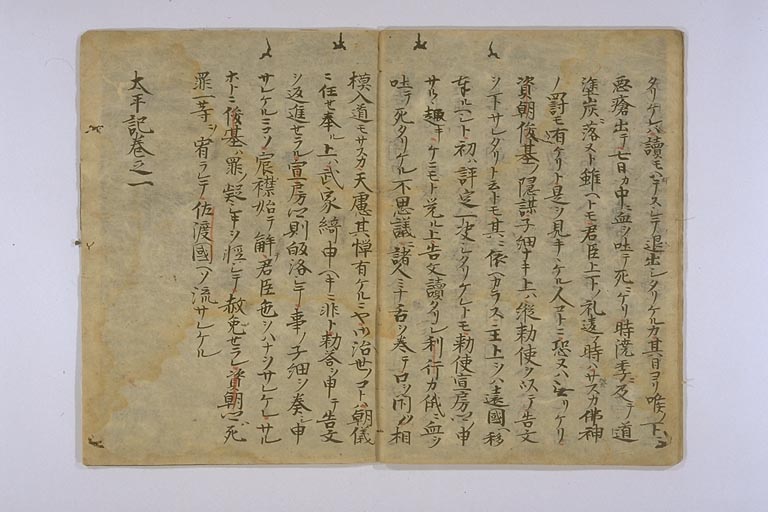 タリケルハ讀モハテスシテ退出シタリケルカ其日ヨリ喉ノ下ニ
悪瘡出テ七日カ中ニ血ヲ吐テ死ニケリ時澆季ニ及テ道
塗炭ニ落ヌト雖トモ君臣上下ノ礼違フ時ハサスカ佛神
ノ罸モ有ケリト是ヲ見キヽケル人コトニ恐ヌハ無リケリ
資朝俊基ノ隠謀子細ナキ上ハ縦勅使ヲ以テ告文
ヲ下サレタリト云トモ其ニ依ヘカラス主上ヲハ遠國ヘ移
奉ルヘシト初ハ評定一決シタリケレトモ勅使宣房卿ノ申
サルヽ趣キケニモト覚ル上告文讀タリシ利行カ俄ニ血ヲ
吐テ死タリケル不思議ニ諸人ミナ舌ヲ巻テ口ヲ閇ツ相
模入道モサスカ天慮其憚有ケルニヤ御治世ノコトハ朝儀
ニ任セ奉ル上ハ武家綺申ヘキニ非ト勅答ヲ申テ告文
ヲ返進セラル宣房卿則皈洛シテ事ノ子細ヲ奏シ申
サレケルニコソ宸襟始テ解テ君臣色ヲハナヲサレケレサル
ホトニ俊基ハ罪ノ疑キヲ軽シテ赦免セラレ資朝ハ死
罪一等ヲ宥ラレテ佐渡國ヘソ流サレケル
太平記巻之一